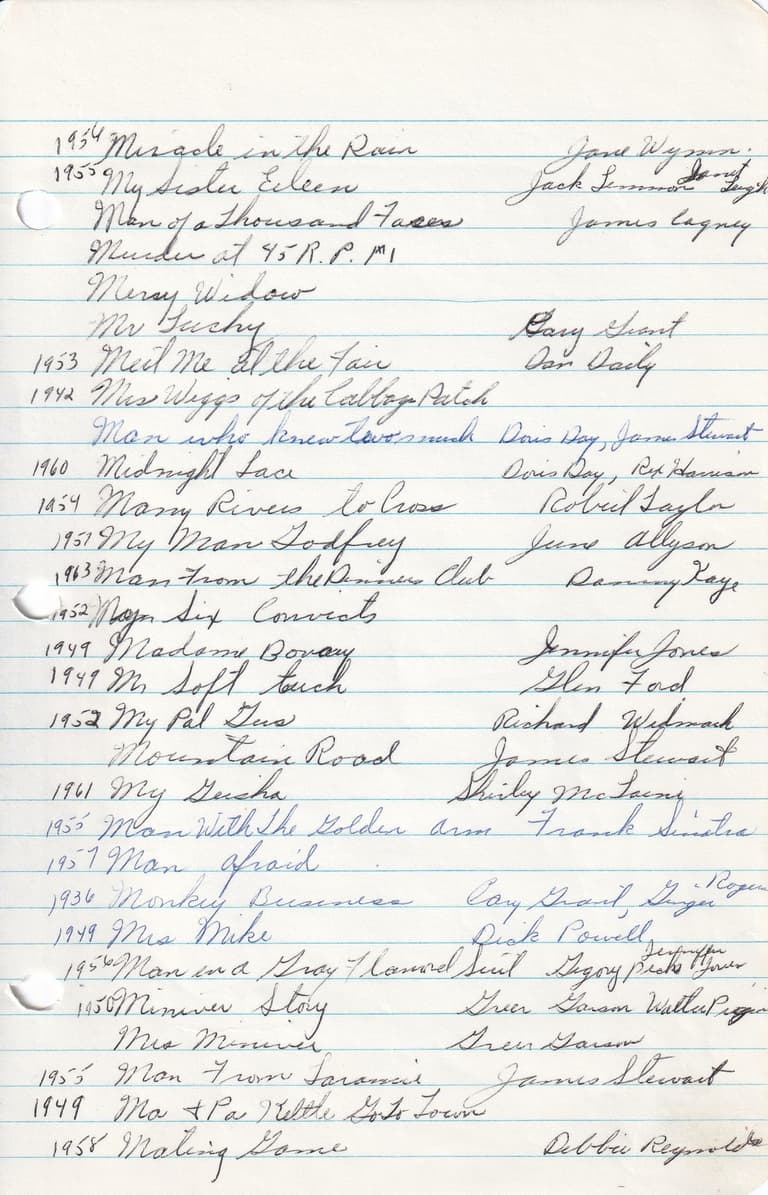 1954 Miracle in the Rain Jane Wymn.
1955 My Sister Eileen Jack Lemmon Janet Leigh
Man of a Thousand Faces James Cagney
Murder at 45 R.P.M
Merry Widow
Mr Luchy Gary Grant
1953 Meet Me at the Fair Dan Daily
1942 Mrs Wiggs of the Cabbage Patch
Man who knew two much Doris Day, James Stewart
1960 Midnight Lace Doris Day, Rex Harrison
1954 Many Rivers to Cross Robert Taylor
1957 My Man Godfrey June Allyson
1963 Man From the Dinners Club Danny Kaye
1952 My Six Convicts
1949 Madame Bovary Jennifer Jones
1949 Mr Soft touch Glen Ford
1952 My Pal Gus Richard Widmark
Mountain Road James Stewart
1961 My Geisha Shirley McLaine
1955 Man With the Golden arm Frank Sinatra
1957 Man afraid
1936 Monkey Business Cary Grant, Ginger Rogers
1949 Mrs Mike Dick Powell
1956 Man in a Gray Flannel Suit Gregory Peck Jennifer Jones
1950 Miniver Story Greer Garson Walter Pigeon
Mrs Miniver Greer Garson
1955 Man From Laramie James Stewart
1949 Ma + Pa Kettle Go To Town
1958 Mating Game Debbie Reynolds